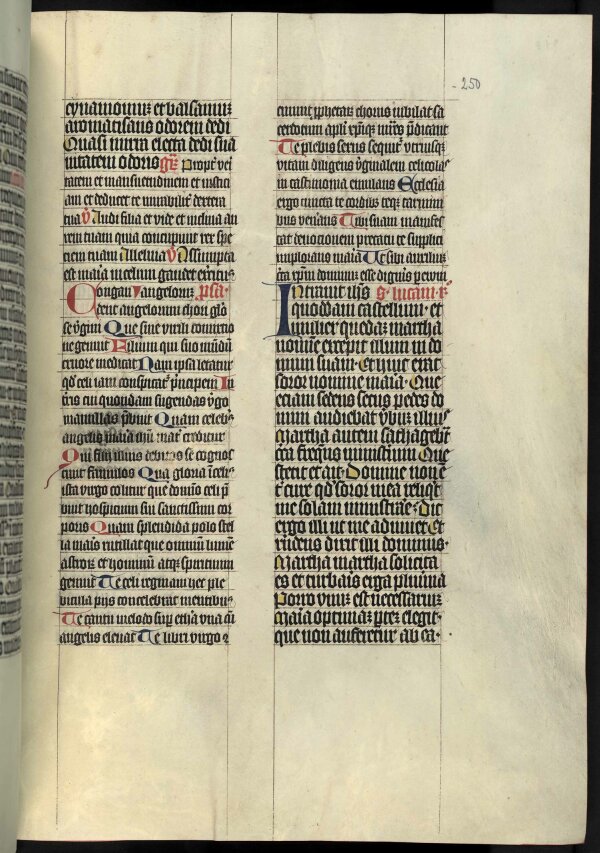 250
cynamomum et balsamum
aromatisans odorem dedi
Quasi mirra electa dedi sua
uitatem odoris gr̄ Propter veri
tatem et mansuetudinem et iustici
am et deducet te mirabiliter dextera
tua ℣ Audi filia et vide et inclina au
rem tuam quia concupiuit rex spe
ciem tuam Alleluia ℣ Assumpta
est maria in celum gaudet exercitus
Congau angelorum psa
dent angelorum chori glō
se v̄gini Que sine virili commixtio
ne genuit Filium qui suo mūdū
cruore medicat Nam ipsa letatur
qd̄ celi iam conspicat̄ p̄ncipem In
tris cui quondam sugendas v̄go
mamillas p̄buit Quam celebs
angelis maria ihū mat̄ creditur
Qui filij illius debitos se cognos
cunt famulos Qua gloria ī celis
ista virgo colitur que domino celi p̄
buit hospicium sui sanctissimi cor
poris Quam splendida polo stel
la maris rutilat que omnium lumē
astrorum et hominum atque spirituum
genuit Te celi reginam hec ple
bicula pijs concelebrat mentibus
Te cantu melodo sup̄ ethera vna cū
angelis eleuat Te libri virgo
cinunt p̄phetarum chorus iubilat sa
cerdotum apl̄i xp̄iqz mr̄es p̄dicant
Te plebis sexus sequit̄ vtriusqz
vitam diligens v̄ginalem celicolas
in castimonia emulans Ecclesia
ergo cuncta te cordibus teqz carmini
bus venerans Tibi suam manifes
tat deuocionem precatu te supplici
implorans maria Ut sibi auxilium
circa xp̄m dominum esse digneris per euum
Intrauit ih̄s S. lucam. R̄
quoddam castellum et
mulier quedam martha
nomine excepit illum in do
mum suam Et huic erat
soror nomine maria Que
eciam sedens secus pedes do
mini audiebat v̄bum illius
Martha autem sathagebat
circa frequens ministerium Que
stetit et ait Domine non ē
t̄ cure qd̄ soror mea reliqt̄
me solam ministrare Dic
ergo illi ut me adiuuet Et
rn̄dens dixit illi dominus
Martha martha solicita
es et turbaris erga plurima
Porro vnum est necessarium
Maria optimam partem elegit
que non auferetur ab ea